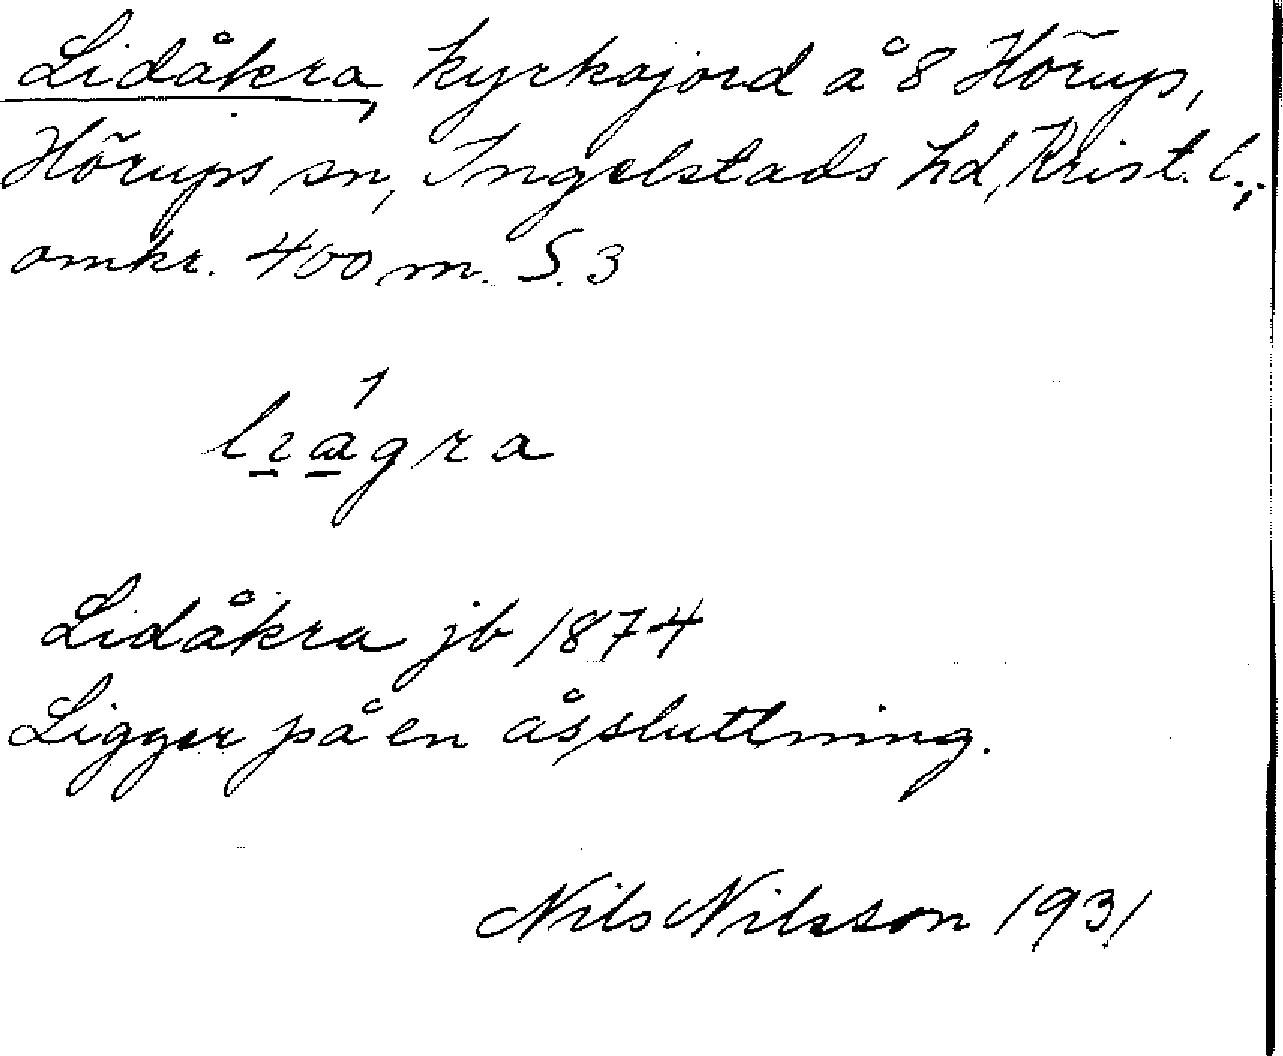 Lidåkra, kyrkojord å 8 Hörup,
Hörups sn, Ingelstads hd, Krist. l.,
omkr. 400 m. S. 3
Lidåkra jb 1874
Ligger på en åssluttning.
Nils Nilsson 1931